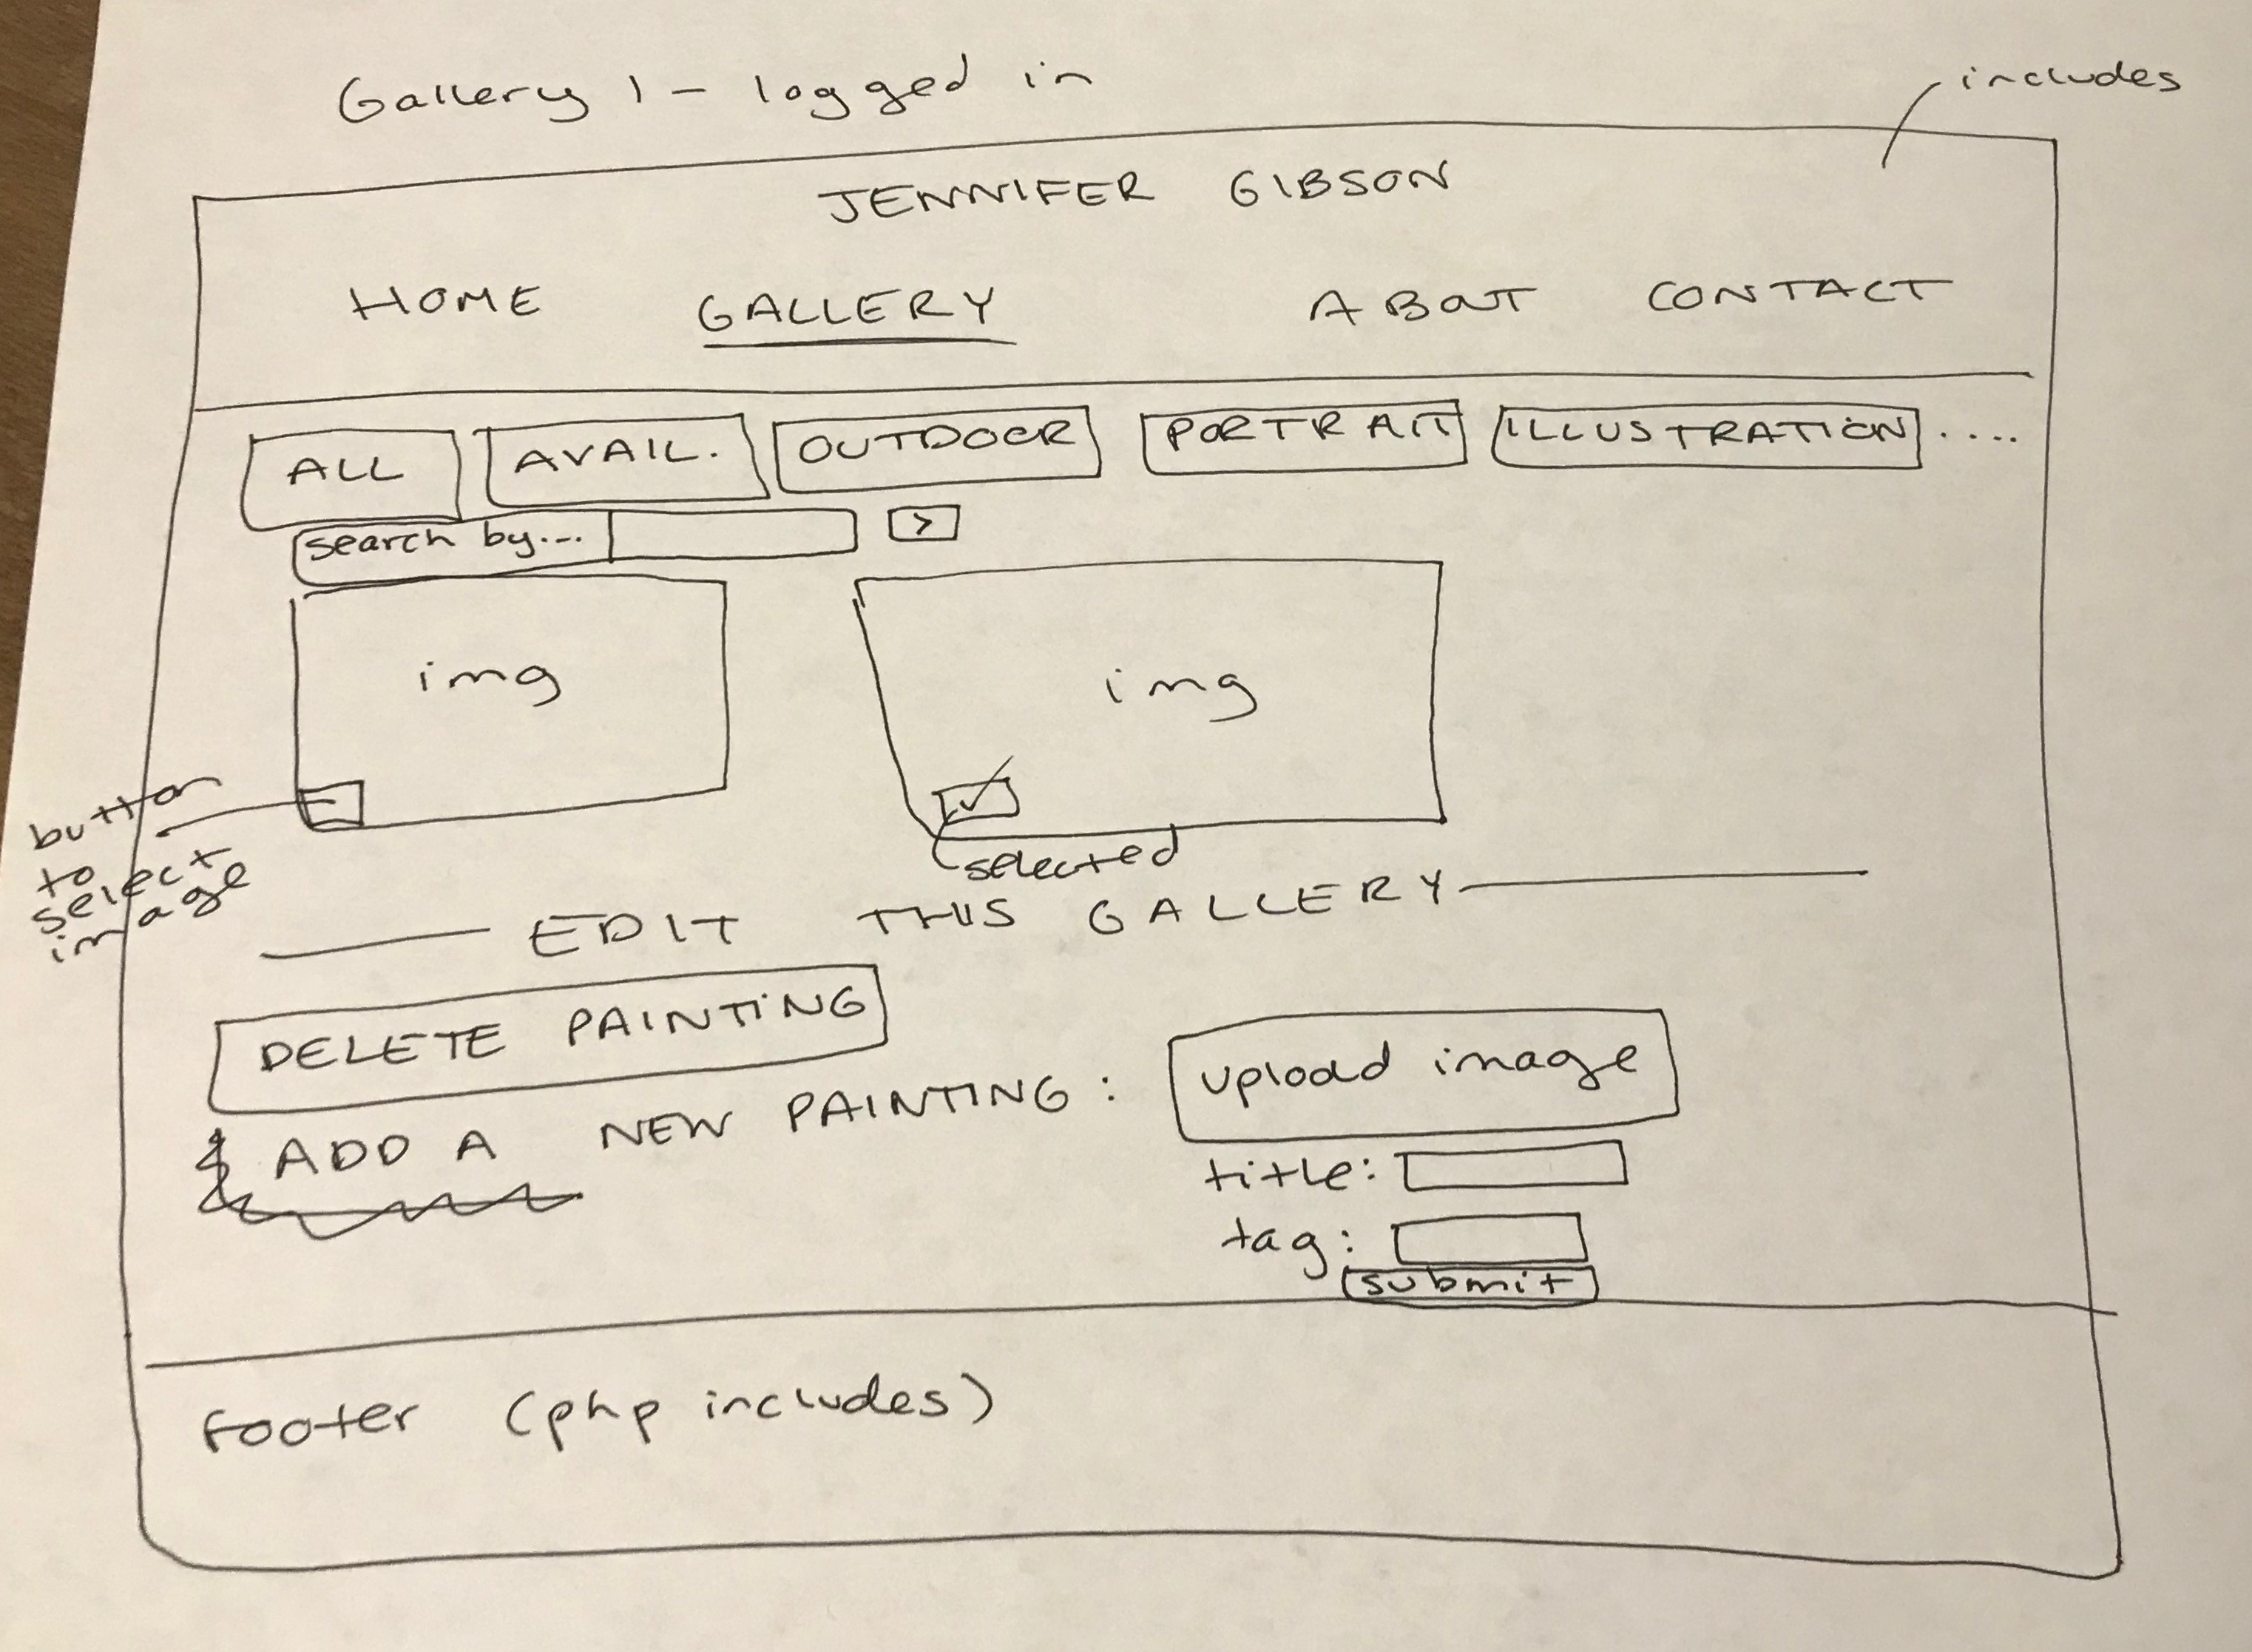 Gallery 1 - logged in
includes
JENNIFER GIBSON
HOME GALLERY ABOUT CONTACT
ALL AVAIL. OUTDOOR PORTRAIT ILLUSTRATION ....
search by... >
img img
button
to
select
image
selected
EDIT THIS GALLERY
DELETE PAINTING
ADD A NEW PAINTING: upload image
title:
tag:
submit
footer (php includes)